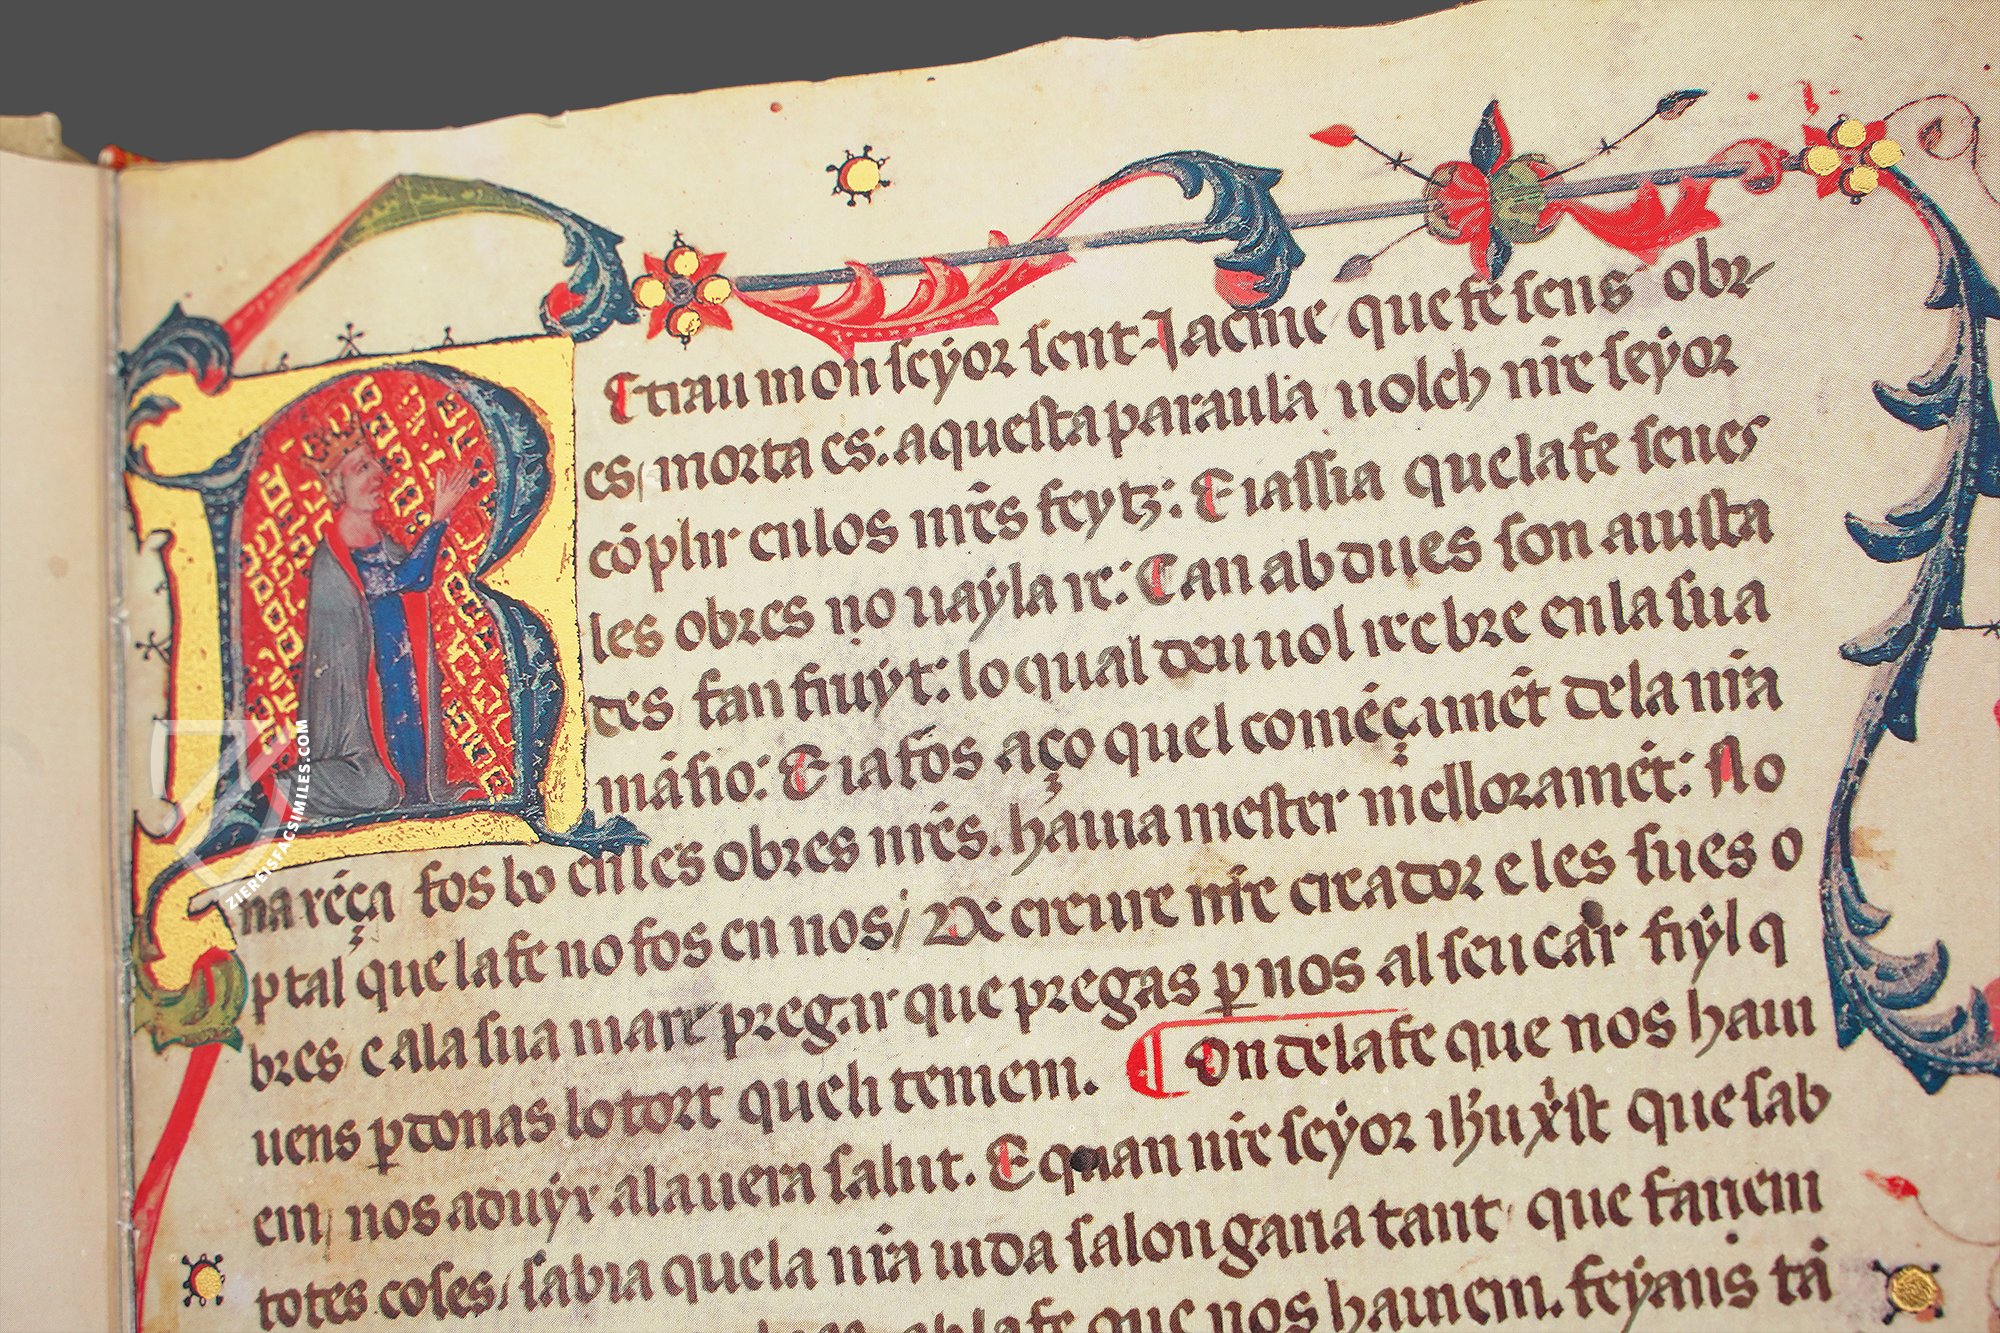 R
Etrau mon seyor sent Jacme que fe sens obr-
es, morta es: aquesta paraula volch nr̄e seyor
cōplir en los nr̄es feytz: E ia ssia que la fe senes
les obres no vayla re: Can abdues son aiusta
des fan fruyt: lo qual deu vol reebre en la sua
māsio: E ia fos aço quel començamēt de la nr̄a
naxēça fos bo en les obres nr̄es. havia mester melloramēt: No
p tal que la fe no fos en nos, De creure nr̄e creador e les sues o
bres, e a la sua mare pregar que pregas p nos al seu car fiyl q
uens pdonas lo tort queli teniem. On de la fe que nos havi
em, nos aduyx a la vera salut. E quan nr̄e seyor ihū xp̄st que sab
totes coses, sabia que la nr̄a vida salongaria tant, que fariem
ab la fe que nos haviem. feyans tā
ZIEREISFACSIMILES.COM